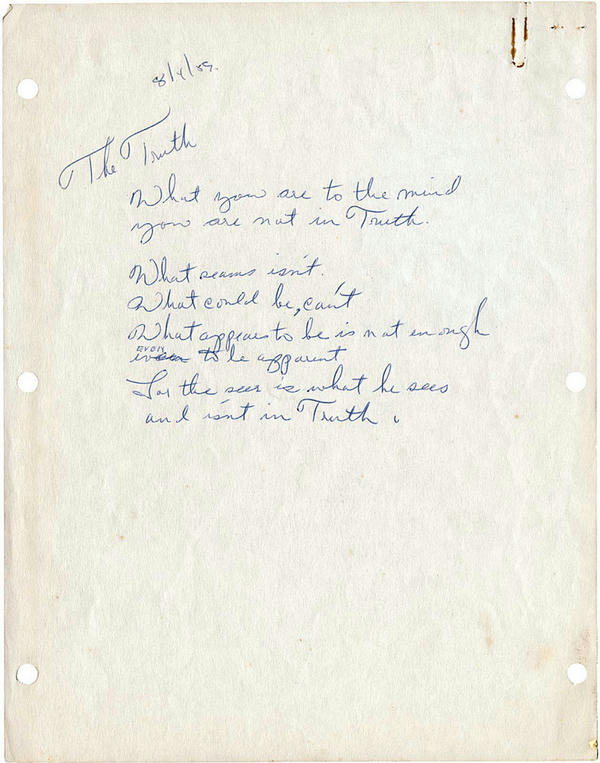 8/4/89.
The Truth
What you are to the mind
you are not in Truth.
What seams isn't.
What could be, can't
What appears to be is not enough
even
to be apparent
For the seer is what he sees
and isn't in Truth.